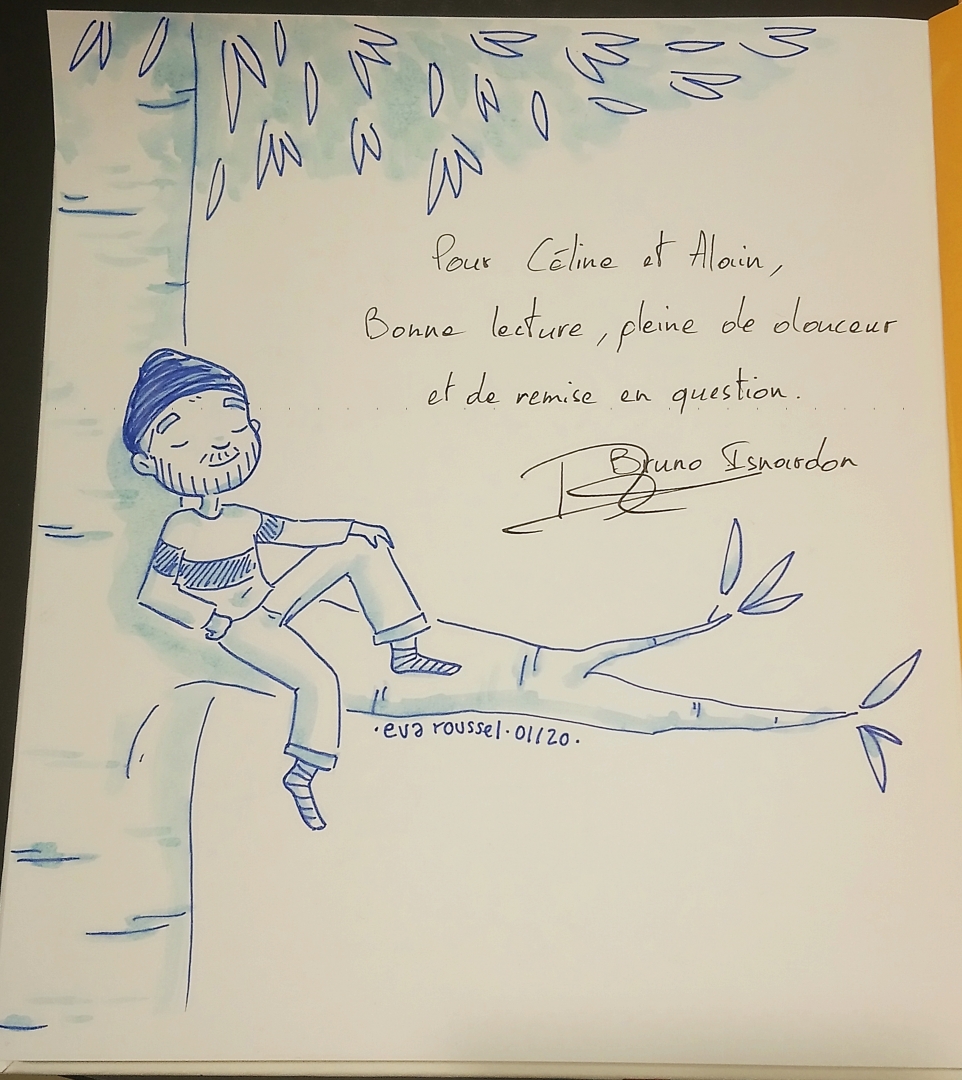 Pour Céline et Alain,
Bonne lecture, pleine de douceur
et de remise en question.
Bruno Isnardon
·eva roussel·01/20·